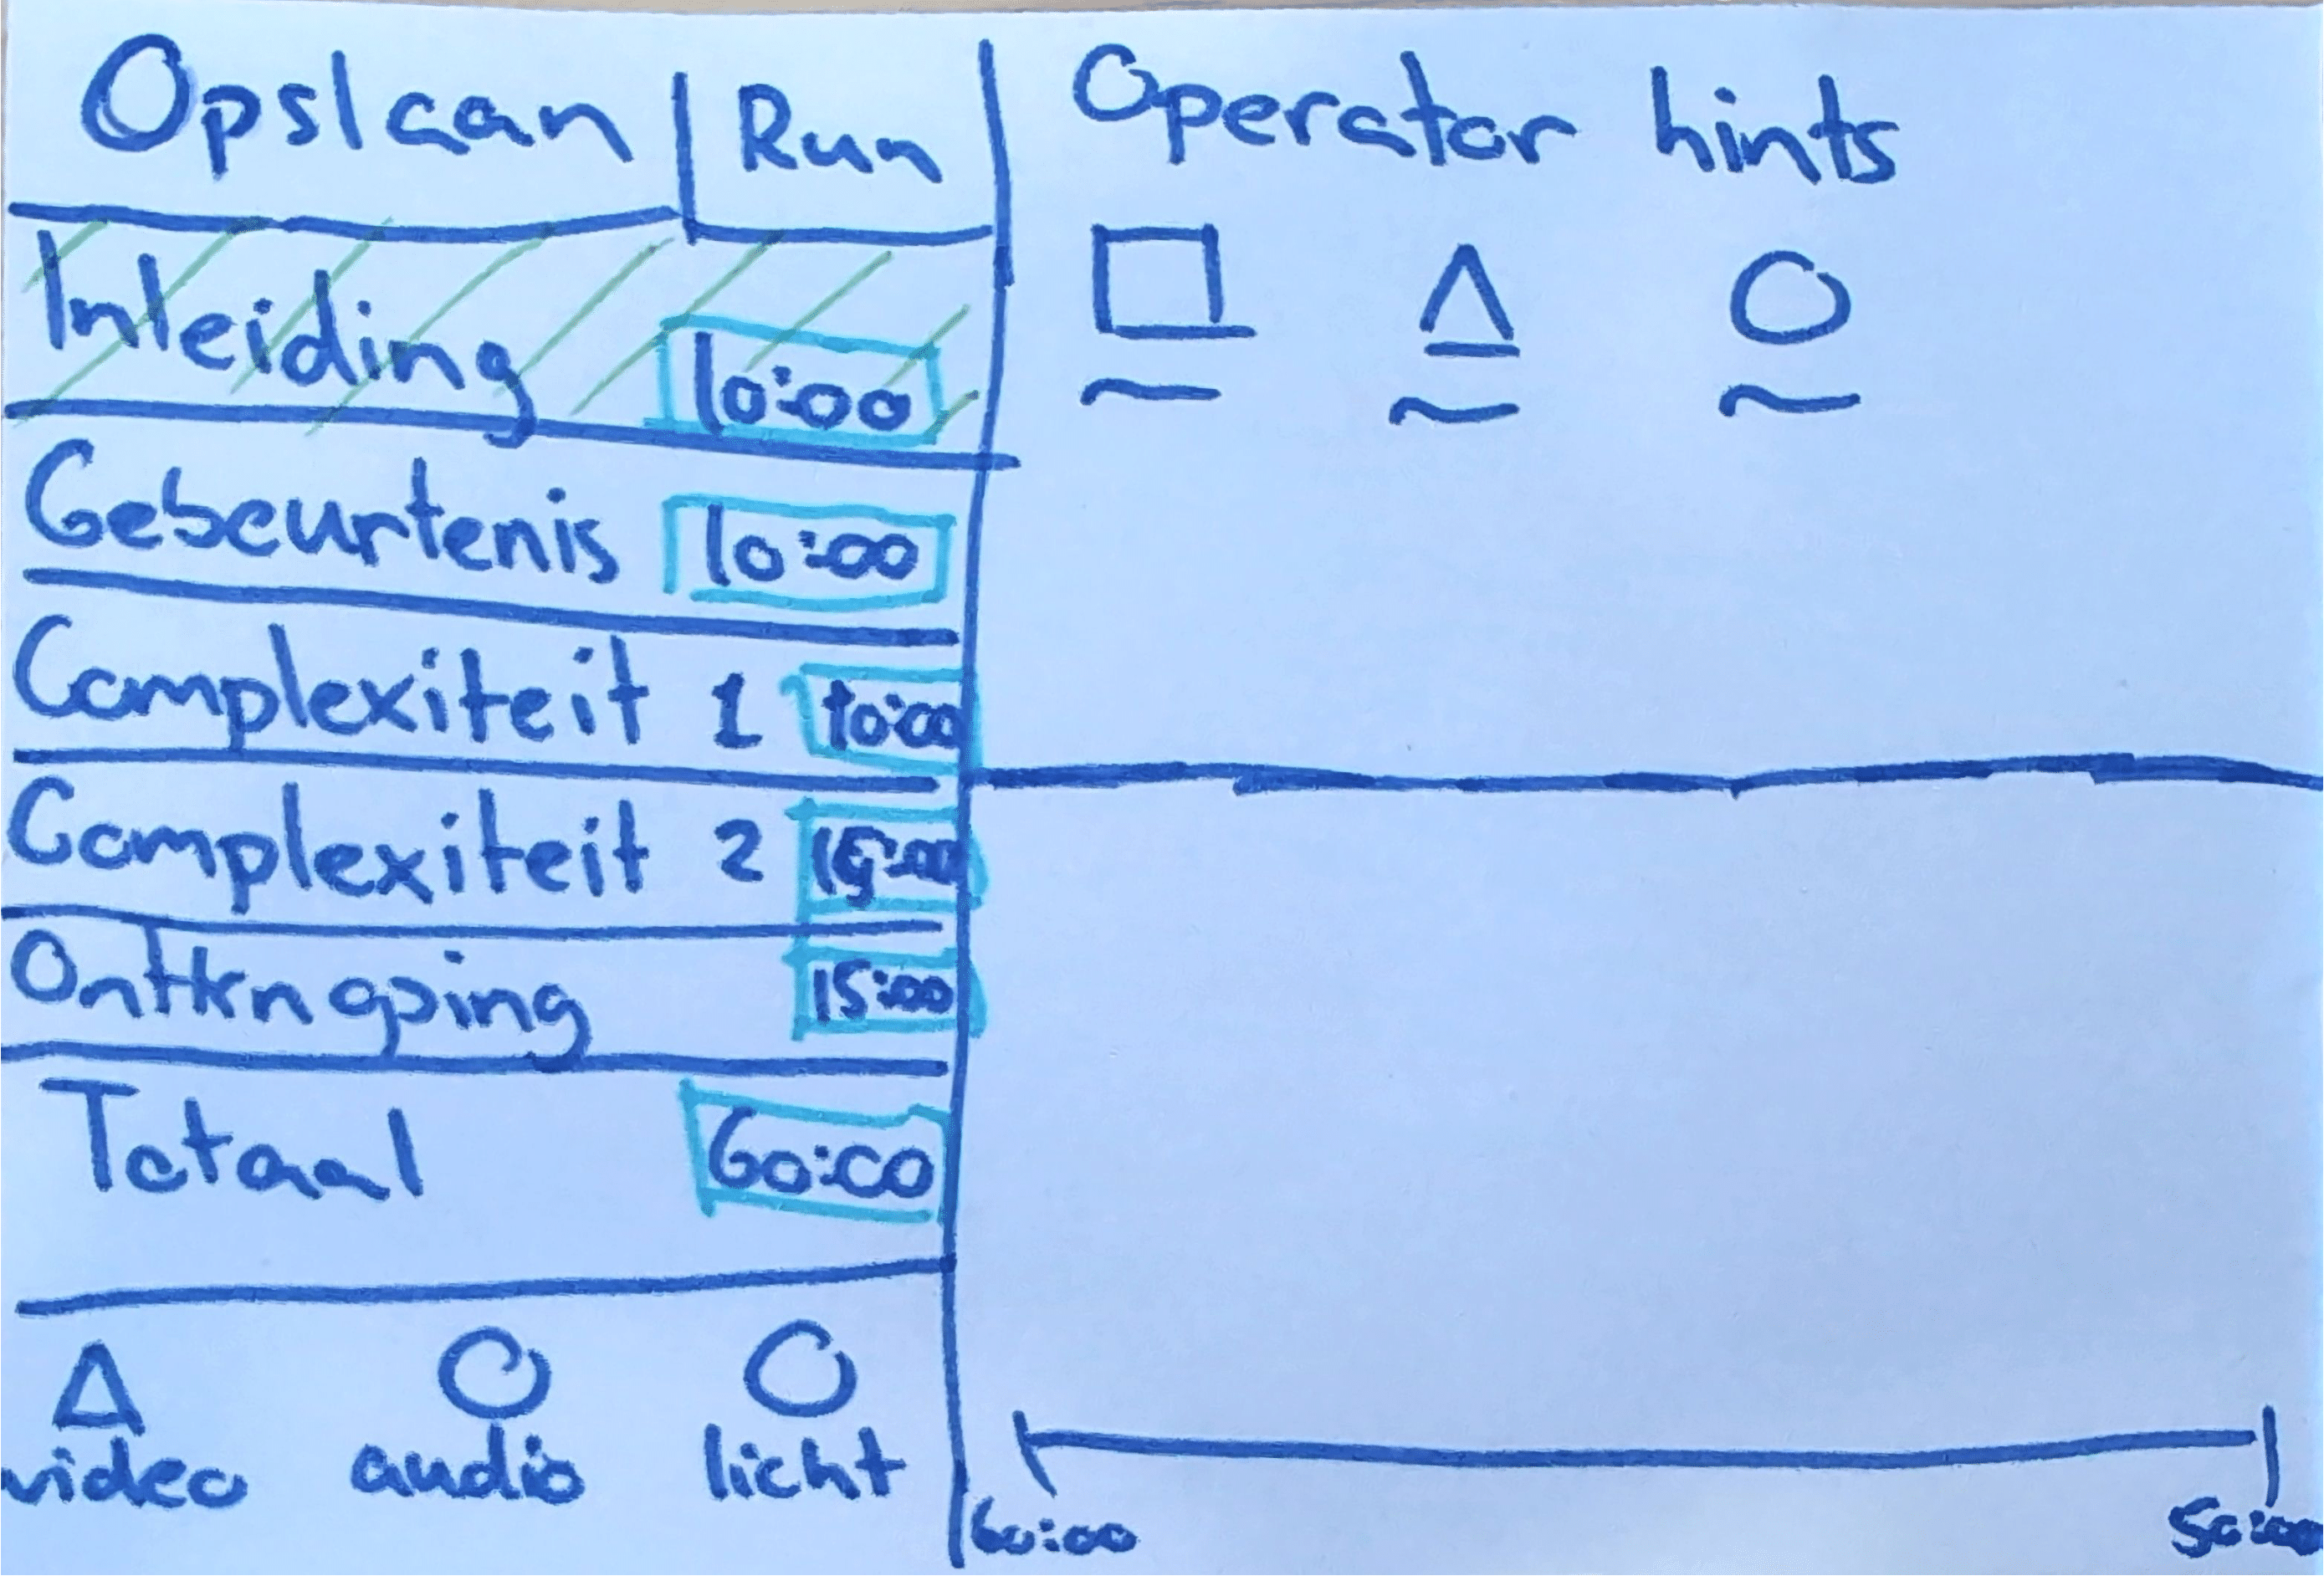 Opslaan Run
Inleiding 10:00
Gebeurtenis 10:00
Complexiteit 1 10:00
Complexiteit 2 15:00
Ontknoping 15:00
Totaal 60:00
video audio licht
Operator hints
60:00 50:00